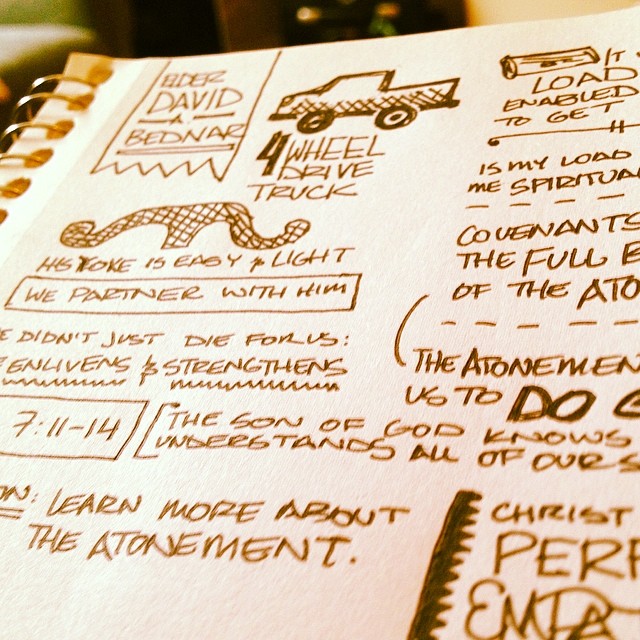 ELDER
DAVID
A
BEDNAR
4 WHEEL
DRIVE
TRUCK
HIS YOKE IS EASY & LIGHT
WE PARTNER WITH HIM
DIDN'T JUST DIE FOR US:
ENLIVENS & STRENGTHENS
7:11-14
THE SON OF GOD KNOWS
UNDERSTANDS ALL OF OUR
LEARN MORE ABOUT
THE ATONEMENT.
IT
LOAD
ENABLED
TO GET
IS MY LOAD
ME SPIRITUA
COVENANTS
THE FULL
OF THE ATO
THE ATONEMEN
US TO DO
CHRIST
PER
EMPA